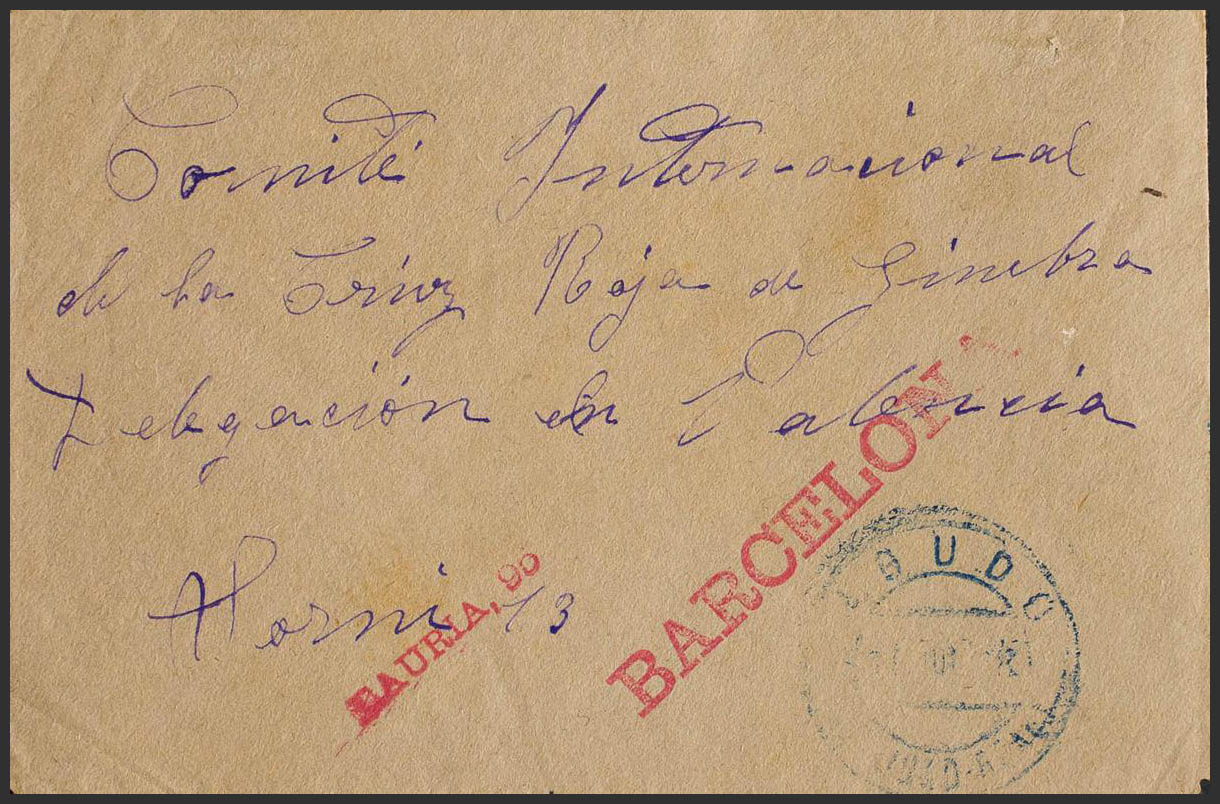 Comité Internacional
de la Crúz Roja de Ginebra
Delegación en Valencia
13
LAURIA, 95
BARCELONA